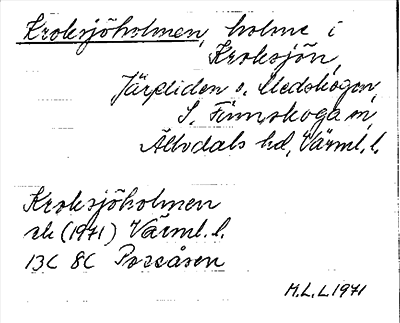 Kroksjöholmen, holme i
Kroksjön,
Järpliden o. Medskogen,
S. Finnskoga sn,
Älvdals hd, Värml. l.
Kroksjöholmen
ek (1971) Värml. l.
13C 8C Possåsen
M.L.L 1971